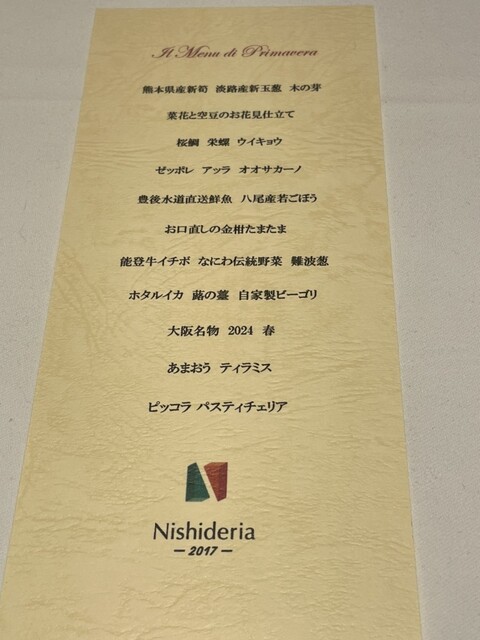 Il Menu di Primavera
熊本県産新筍 淡路産新玉葱 木の芽
菜花と空豆のお花見仕立て
桜鯛 栄螺 ウイキョウ
ゼッポレ アッラ オオサカーノ
豊後水道直送鮮魚 八尾産若ごぼう
お口直しの金柑たまたま
能登牛イチボ なにわ伝統野菜 難波葱
ホタルイカ 蕗の薹 自家製ビーゴリ
大阪名物 2024 春
あまおう ティラミス
ピッコラ パスティチェリア
Nishideria
-2017-